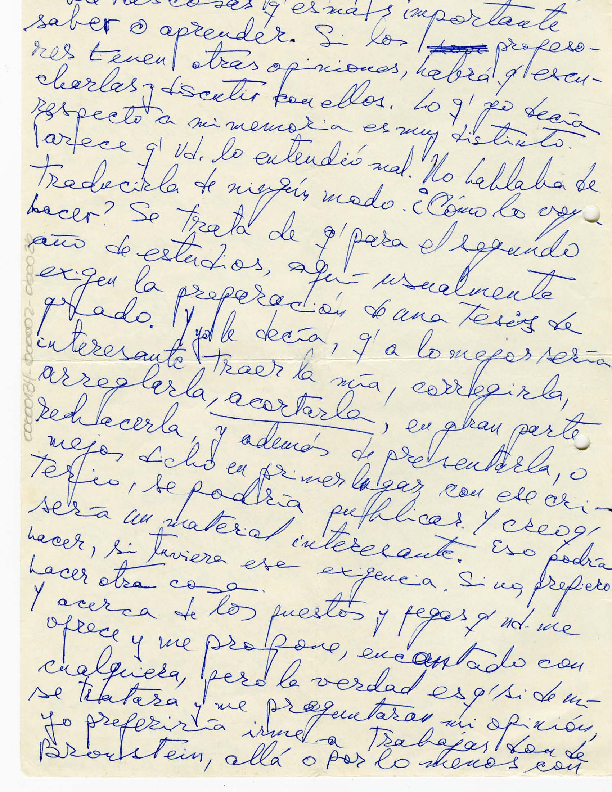 cosas q' es más importante
saber o aprender. Si los profeso-
res tienen otras opiniones, habrá q' escu-
charlas y discutir con ellos. Lo q' yo decía
respecto a mi memoria es muy distinto.
Parece q' Vd. lo entendió mal. No hablaba de
traducirla de ningún modo. ¿Cómo lo voy a
hacer? Se trata de q' para el segundo
año de estudios, aquí usualmente
exigen la preparación de una tesis de
grado. Y yo le decía, q' a lo mejor sería
interesante traer la mía, corregirla,
arreglarla, acortarla, en gran parte
rehacerla, y además de presentarla, o
mejor dicho en primer lugar, con ese cri-
terio, se podría publicar. Y creo q'
sería un material interesante. Eso podría
hacer, si tuviera ese exigencia. Si no, prefiero
hacer otra cosa.
Y acerca de los puestos y pegas q' vd. me
ofrece y me propone, encantado con
cualquiera, pero la verdad es q' si de mi
se tratara y me preguntaran mi opinión,
yo preferiría irme a trabajar donde
Bronstein, allá o por lo menos con